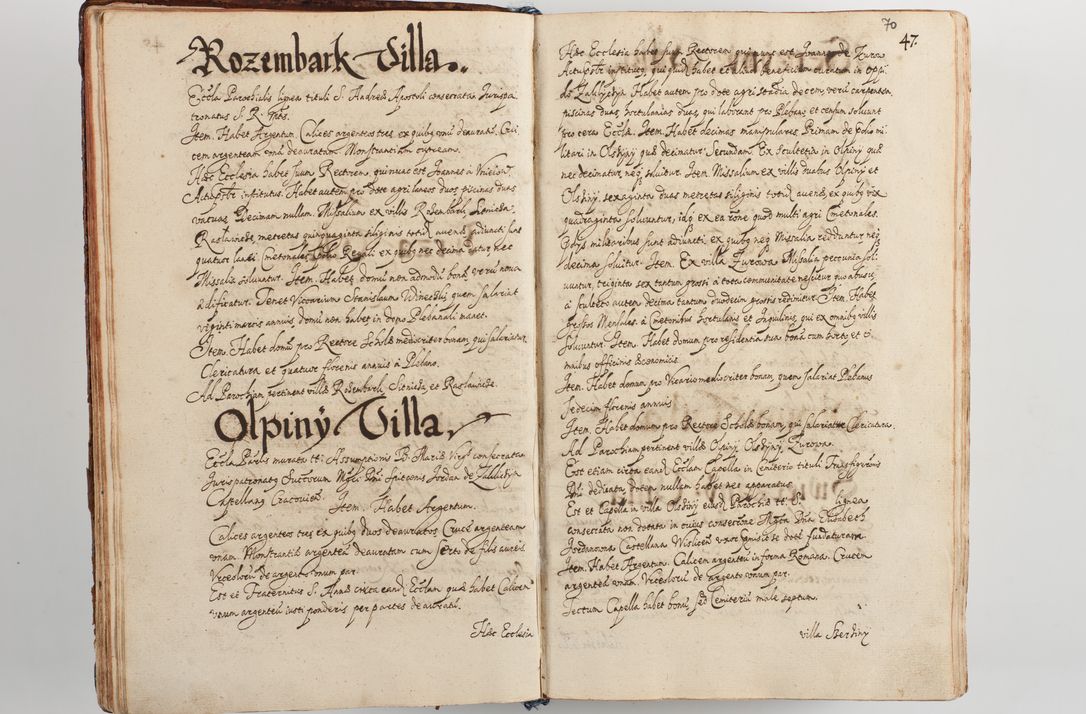 Rozembark Villa..
Eccl̃a Parochialis lignea tituli S. Andreæ Apostoli consecrata Iurispa
tronatus S. R. Mtis.
Item. Habet Argentum. Calices argenteos tres ex quibꝫ unũ deauratũ. Cru
cem argenteam unã deauratam. Monstrantiam cupream.
Hæc Ecclesia habet suum Rectorem quinunc est Joannes à
Actu pr̃br institutus. Habet autem pro dote agri laneos duos piscinas duas
vacuas. Decimam nullam. Missalium ex villis Rosembark Sienieda
Raslawicæ, metretas quinquaginta siliginis totid auenæ, adiuncti sunt
quatuor lanei Cmetonales Prædio Regali ex quibꝫ nec decima datur, nec
Missalia soluuntur. Item. Habet domũ non admodũ bonã verũ noua
ædificatur. Tenet Vicarium Stanislaum quem salariat
viginti marcis annuis, domũ non habet in domo Plebanali manet.
Item. Habet domũ pro Rectore Scholæ mediocriter bonam, qui salariatur
Clericatura et quatuor florenis annuis à Plebano.
Ad Parochiam pertinent villæ Rosembark Sienieda, et Raslawicæ.
Olpiny Villa
Eccl̃a Par̃lis murata tt̃i Assumptionis B. Mariæ Virg̃ consecrata
Iurispatronatꝫ Succorum Mg̃ci Dñi Spitconis Jordan de Zakliczyn
Castellani Cracouieñ. Item. Habet Argentum.
Calices argenteos tres ex quibꝫ duo deauratos Crucẽ argenteam
unam Monstrantiã argenteã deauratam cum Serto de filis aureis
Vrceolorũ de argento unum par.
Est et Fraternitas S. Annæ circa eand Eccl̃am quæ habet Calicem
unum argenteũ iusti ponderis per partes deauratũ.
Hæc Ecclesia
70
47.
Hæc Ecclesia habet suum Rectorem quinunc est Joannes de Zurow
Actu pr̃br institutꝫ, qui quid habet et aliud beneficium curatum in oppi
do Zakliczyn Habet autem pro dote agri stadia decem, verũ carpentea,
piscinas duas, hortulanias duas, qui laborant pro Plebano, et censum soluunt
pro ceras Ecclæ. Item. Habet decimas manipulares Primam de Prædio mi
litari in Olsziny quæ decimatur. Secundam. Ex Scultetia in Olpiny quæ
nec decimatur neqꝫ soluitur. Item. Missalium ex villis duabus Olpiny et
Olsziny, sexaginta duas metretas siliginis totid auenæ, ex quibꝫ vix
quadraginta soluuntur, idqꝫ ex ea rõne quod multi agri Cmetonales
Prædijs militaribus sunt adiuncti, ex quibꝫ neqꝫ Missalia redduntur neqꝫ
decima soluitur. Item. Ex villa Zurowa Missalia pecunia sol
uuntur, triginta sex tantum grossi à tota communitate nescitur quo abusu,
à Sculteto autem decima tantum duodecim grossis redimitur. Item. Habet
grossos Mensales à Cmetonibus hortulanis et Inquilinis, qui ex omnibꝫ villis
soluuntur. Item. Habet domum pro residentia sua bonã cum horto et o
mnibus officinis œconomicis.
Item. Habet domum pro Vicario mediocriter bonam, quem salariat Plebanus
sedecim florenis annuis.
Item. Habet domum pro Rectore Scholæ bonam, qui salariatur Clericatura.
Ad Parochiam pertinent villæ Olpiny Olsziny, Zurowa.
Est etiam circa eand Eccl̃am Capella in Cæmiterio tituli Transfigurõnis
Dñi dedicata, dotem nullam habet nec apparatus.
Est et Capella in villa Olsziny eiusd Parochiæ tt̃ S. lignea
consecrata non dotata in cuius consecrõne Mg̃ca Dña Elisabeth
Jordanowa Castellana Wislicen̄ uxor promisit se dotẽ fundaturam.
Item. Habet Argentum. Calicem argenteũ in forma Romana. Crucem
argenteã unam. Vrceolorũ de argento unum par.
Tectum Capella habet bonũ, sed Cæmiterium male septum.
villa Szerziny